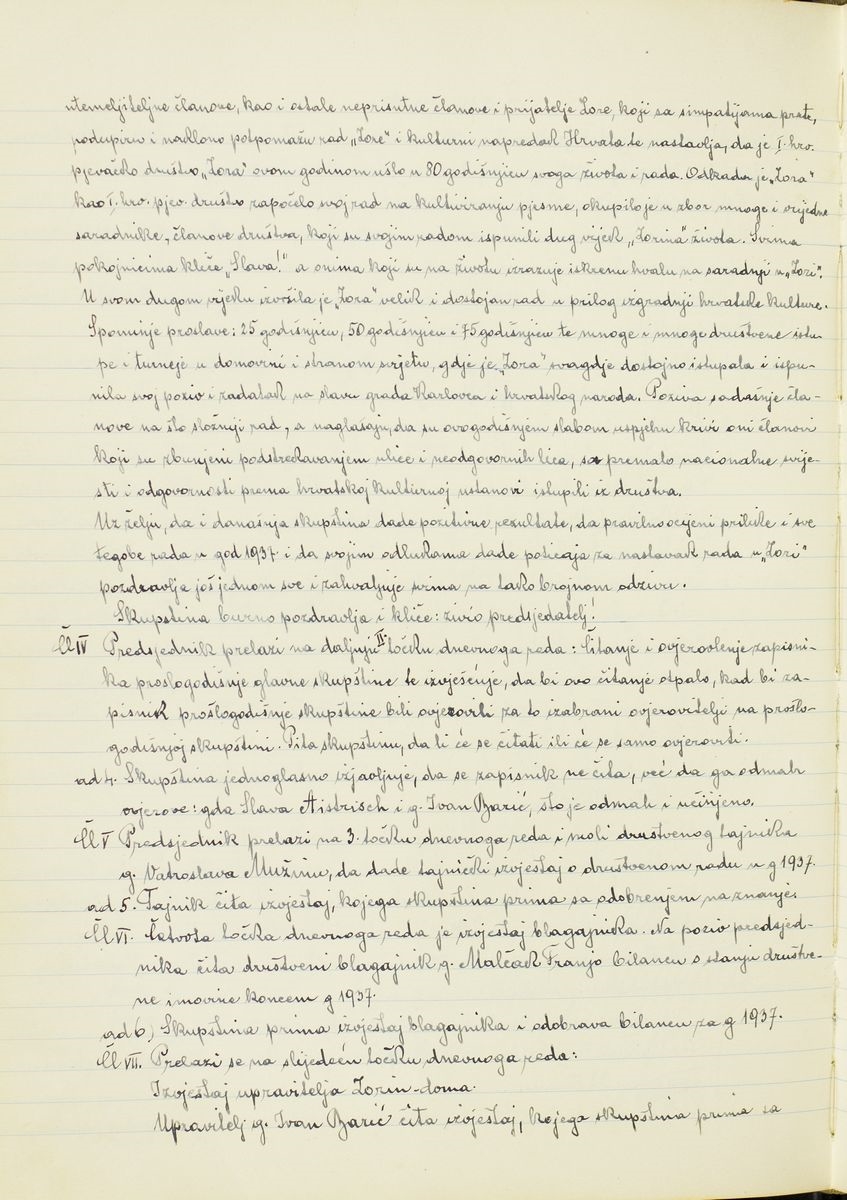 utemeljiteljne članove, kao i ostale neprisutne članove i prijatelje Zore, koji sa simpatijama prate,
podupiru i naklono potpomažu rad „Zore" i kulturni napredak Hrvata te nastavlja, da je I. hrv.
pjevačko društvo „Zora" ovom godinom ušlo u 80 godišnjicu svoga života i rada. Odkada je „Zora"
kao I. hrv. pjev. društvo započelo svoj rad na kultiviranju pjesme, okupilo je u zbor mnoge i vrijedne
saradnike, članove društva, koji su svojim radom ispunili dug vijek „Zorina" života. Svima
pokojnicima kliče „Slava!" a onima koji su na životu izrazuje iskrenu hvalu na saradnji u „Zori".
U svom dugom vijeku izvršila je „Zora" velik i dostojan rad u prilog izgradnji hrvatske kulture.
Spominje proslave: 25 godišnjicu, 50 godišnjicu i 75 godišnjicu te mnoge i mnoge društvene istu-
pe i turneje u domovini i stranom svijetu, gdje je „Zora" svagdje dostojno istupala i ispu-
nila svoj poziv i zadatak na slavu grada Karlovca i hrvatskog naroda. Poziva sadašnje čla-
nove na što složniji rad, a naglašuju, da su ovogodišnjem slabom uspjehu krivi oni članovi
koji su zbunjeni podstrekavanjem ulice i neodgovornih lica, sa premalo nacionalne svije-
sti i odgovornosti prema hrvatskoj kulturnoj ustanovi istupili iz društva.
Uz želju, da i današnja skupština dade pozitivne rezultate, da pravilno ocijeni prilike i sve
tegobe rada u god 1937. i da svojim odlukama dade poticaja za nastavak rada u „Zori"
pozdravlja još jednom sve i zahvaljuje svima na tako brojnom odzivu.
Skupština burno pozdravlja i kliče: živio predsjedatelj!
Čl IV Predsjednik prelazi na daljnju II. točku dnevnoga reda: Čitanje i ovjerovlenje zapisni-
ka proslogodišnje glavne skupštine te izvješćuje, da bi ovo čitanje otpalo, kad bi za-
pisnik prošlogodišnje skupštine bili ovjerovili za to izabrani ovjerovitelji na prošlo-
godišnjoj skupštini. Pita skupštinu, da li će se čitati ili će se samo ovjeroviti.
ad 4. Skupština jednoglasno izjavljuje, da se zapisnik ne čita, već da ga odmah
ovjerove: gđa Slava Aistrisch i g. Ivan Barić, što je odmah i učinjeno.
Čl V Predsjednik prelazi na 3. točku dnevnoga reda i moli društvenog tajnika
g. Vatroslava Mužinu, da dade tajnički izvještaj o društvenom radu u g 1937.
ad 5. Tajnik čita izvještaj, kojega skupština prima sa odobrenjem na znanje.
Čl VI. Četvrta točka dnevnoga reda je izvještaj blagajnika. Na poziv predsjed-
nika čita društveni blagajnik g. Malčak Franjo bilancu o stanju društve-
ne imovine koncem g 1937.
ad 6.) Skupština prima izvještaj blagajnika i odobrava bilancu za g 1937.
Čl VII. Prelazi se na slijedeću točku dnevnoga reda:
Izvještaj upravitelja Zorin-doma.
Upravitelj g. Ivan Barić čita izvještaj, kojega skupština prima sa